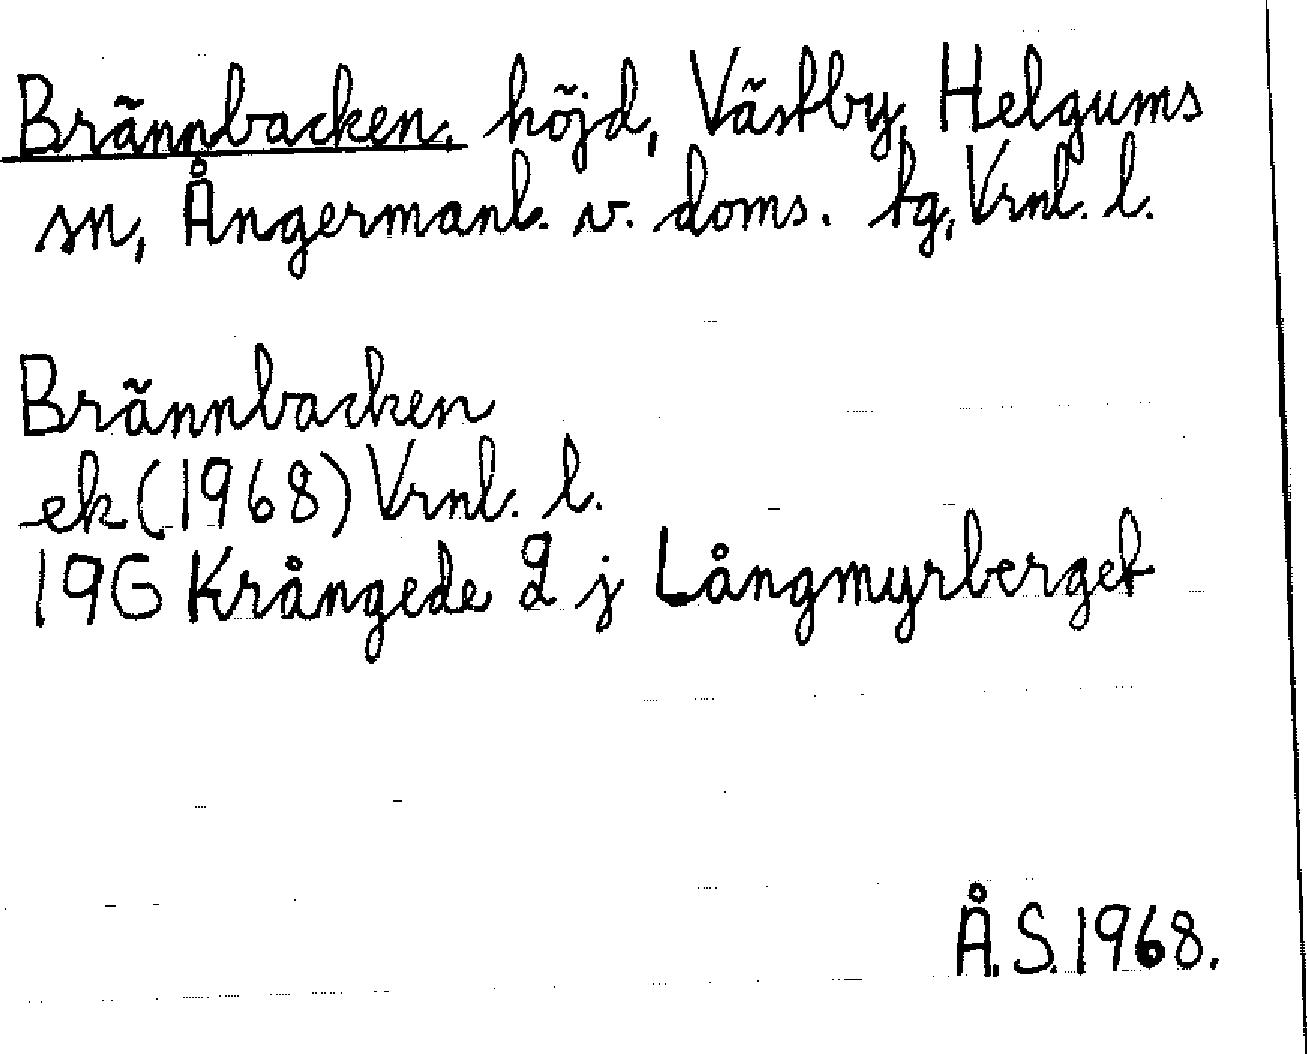 Brännbacken, höjd, Västby, Helgums
sn, Ångermanl. v. doms. tg, Vrnl. l.
Brännbacken
ek (1968) Vrnl. l.
19G Krångede 2 j Långmyrberget
Å.S. 1968.